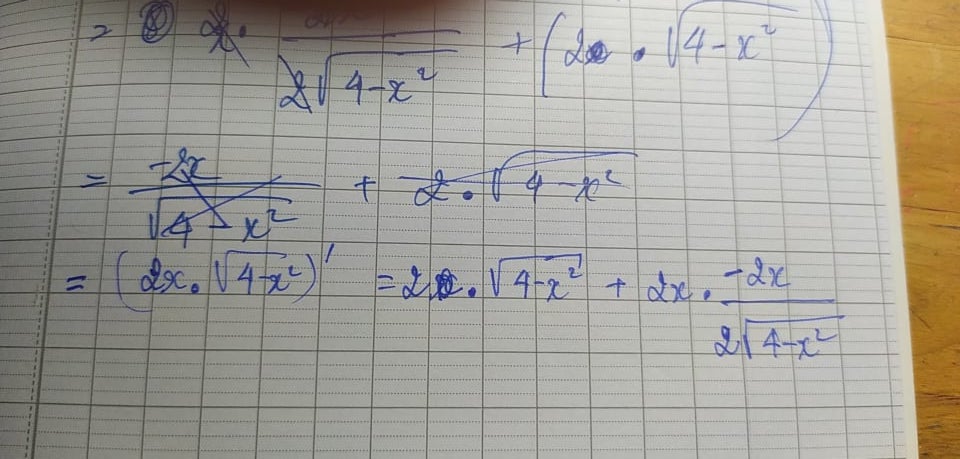 = 2 · / 2√(4-x²) + (2 · √(4-x²))
= -2x / √(4-x²) + 2 · √(4-x²)
= (2x · √(4-x²))' = 2 · √(4-x²) + 2x · -2x / 2√(4-x²)